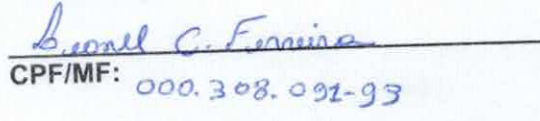 Leonel C. Ferreira
CPF/MF: 000.308.091-93